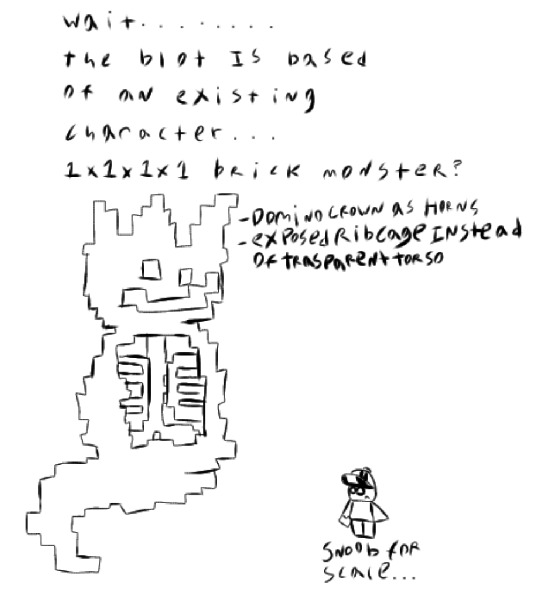 wait........
the blot Is based
of an existing
character...
1x1x1x1 brick monster?
-Domino crown as Horns
-exposed Ribcage Instead
of trasparent torso
Snoob for
scale...